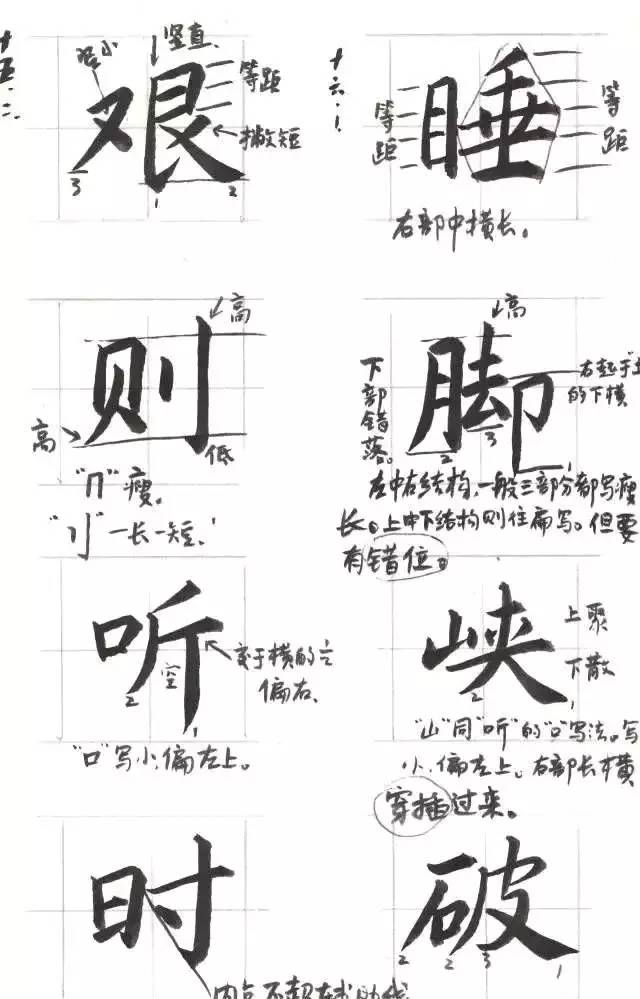 十五.二.
竖直.
等距
撇短
艰
3
1
2
十六.1.
等距
睡
等距
右部中横长。
高
则
高
低
"冂"瘦。
"刂"一长一短.
高
下部错落。
脚
右起于土的下横
2
3
1
左中右结构,一般三部分都写瘦
长。上中下结构则往扁写。但要
有错位。
听
空
2
1
交于横的
偏右.
"口"写小,偏左上。
峡
上聚
下散
2
1
"山"同"听"的"口"写法。写
小.偏左上。右部长横
穿插过来。
时
破
2
2
3
1